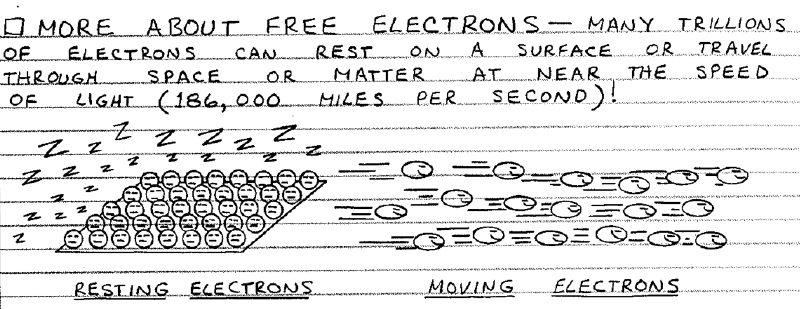 □ MORE ABOUT FREE ELECTRONS — MANY TRILLIONS
OF ELECTRONS CAN REST ON A SURFACE OR TRAVEL
THROUGH SPACE OR MATTER AT NEAR THE SPEED
OF LIGHT (186,000 MILES PER SECOND)!
Z Z Z Z Z Z Z
Z Z Z Z Z Z Z Z Z
Z Z Z
Z Z Z
Z
RESTING ELECTRONS MOVING ELECTRONS